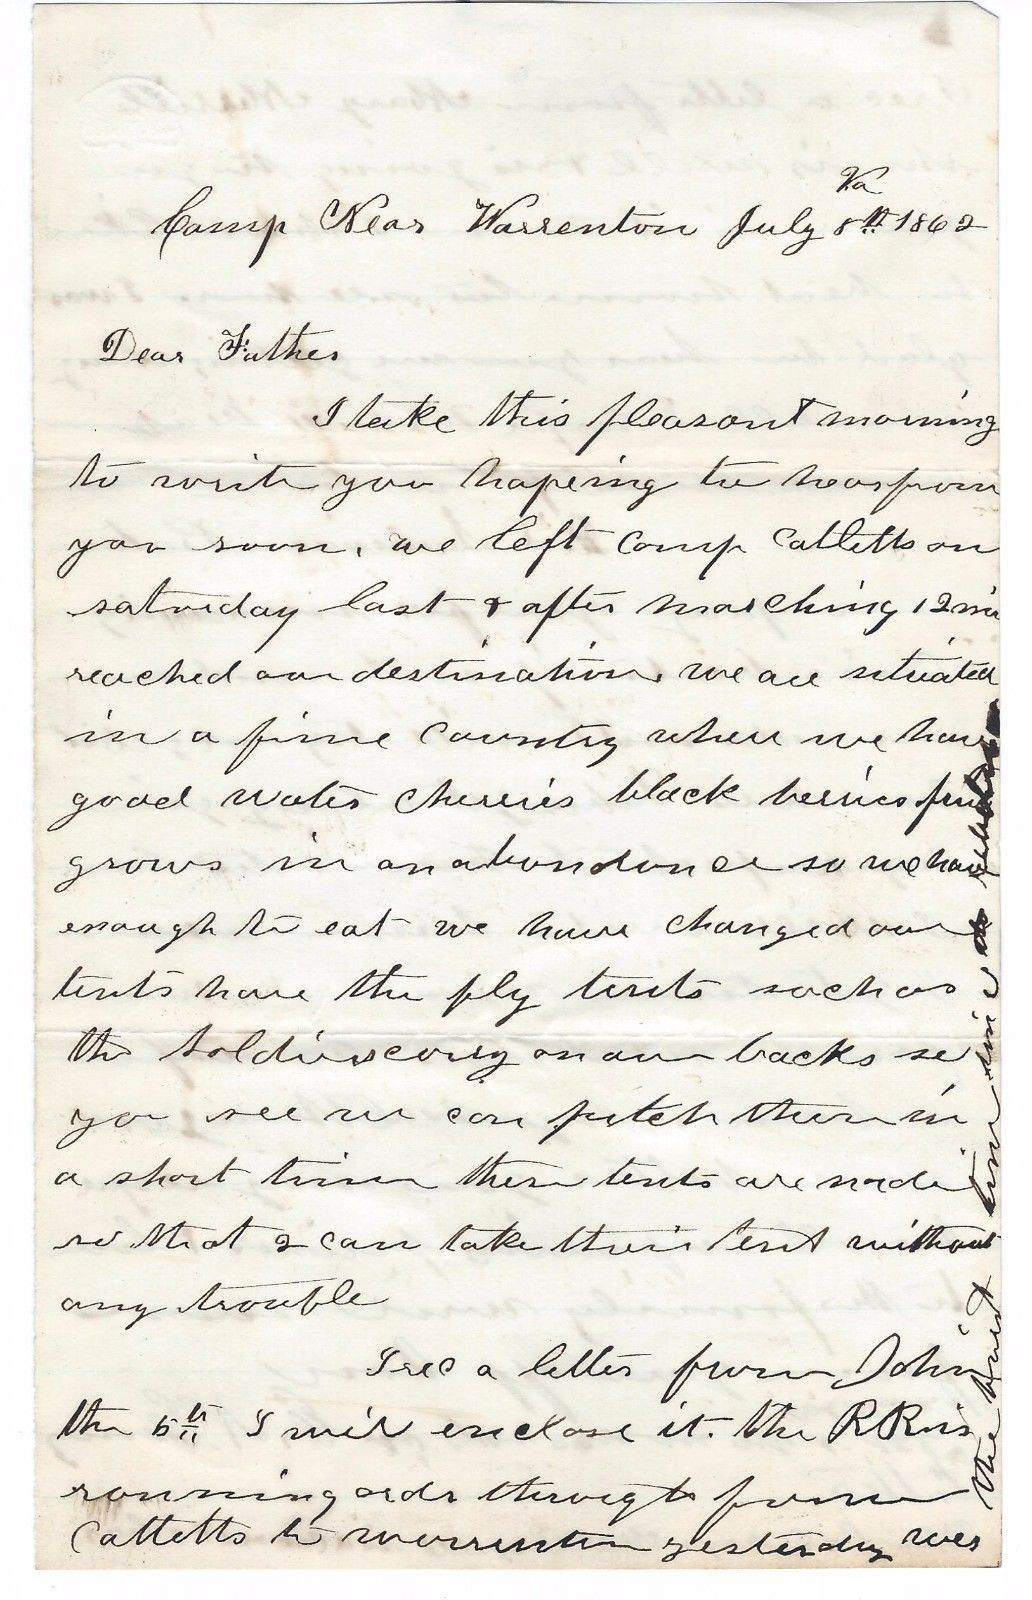 Va
Camp Near Warrenton July 8th 1862
Dear Father
I take this pleasant morning
to write you hopeing to hear from
you soon. we left camp Catletts on
saturday last & after marching 12 mi
reached our destination. we are situated
in a fine country where we have
good water cherries black berries fruit
grows in an abundance so we have
enough to eat we have changed our
tents have the fly tents such as
the soldiers carry on our backs so
you see we can pitch them in
a short time these tents are made
so that 2 can take their tent without
any trouble
I rec a letter from John
the 5th I will enclose it. the RR is
running through from
Catletts to warrenton yesterday was
the first time since